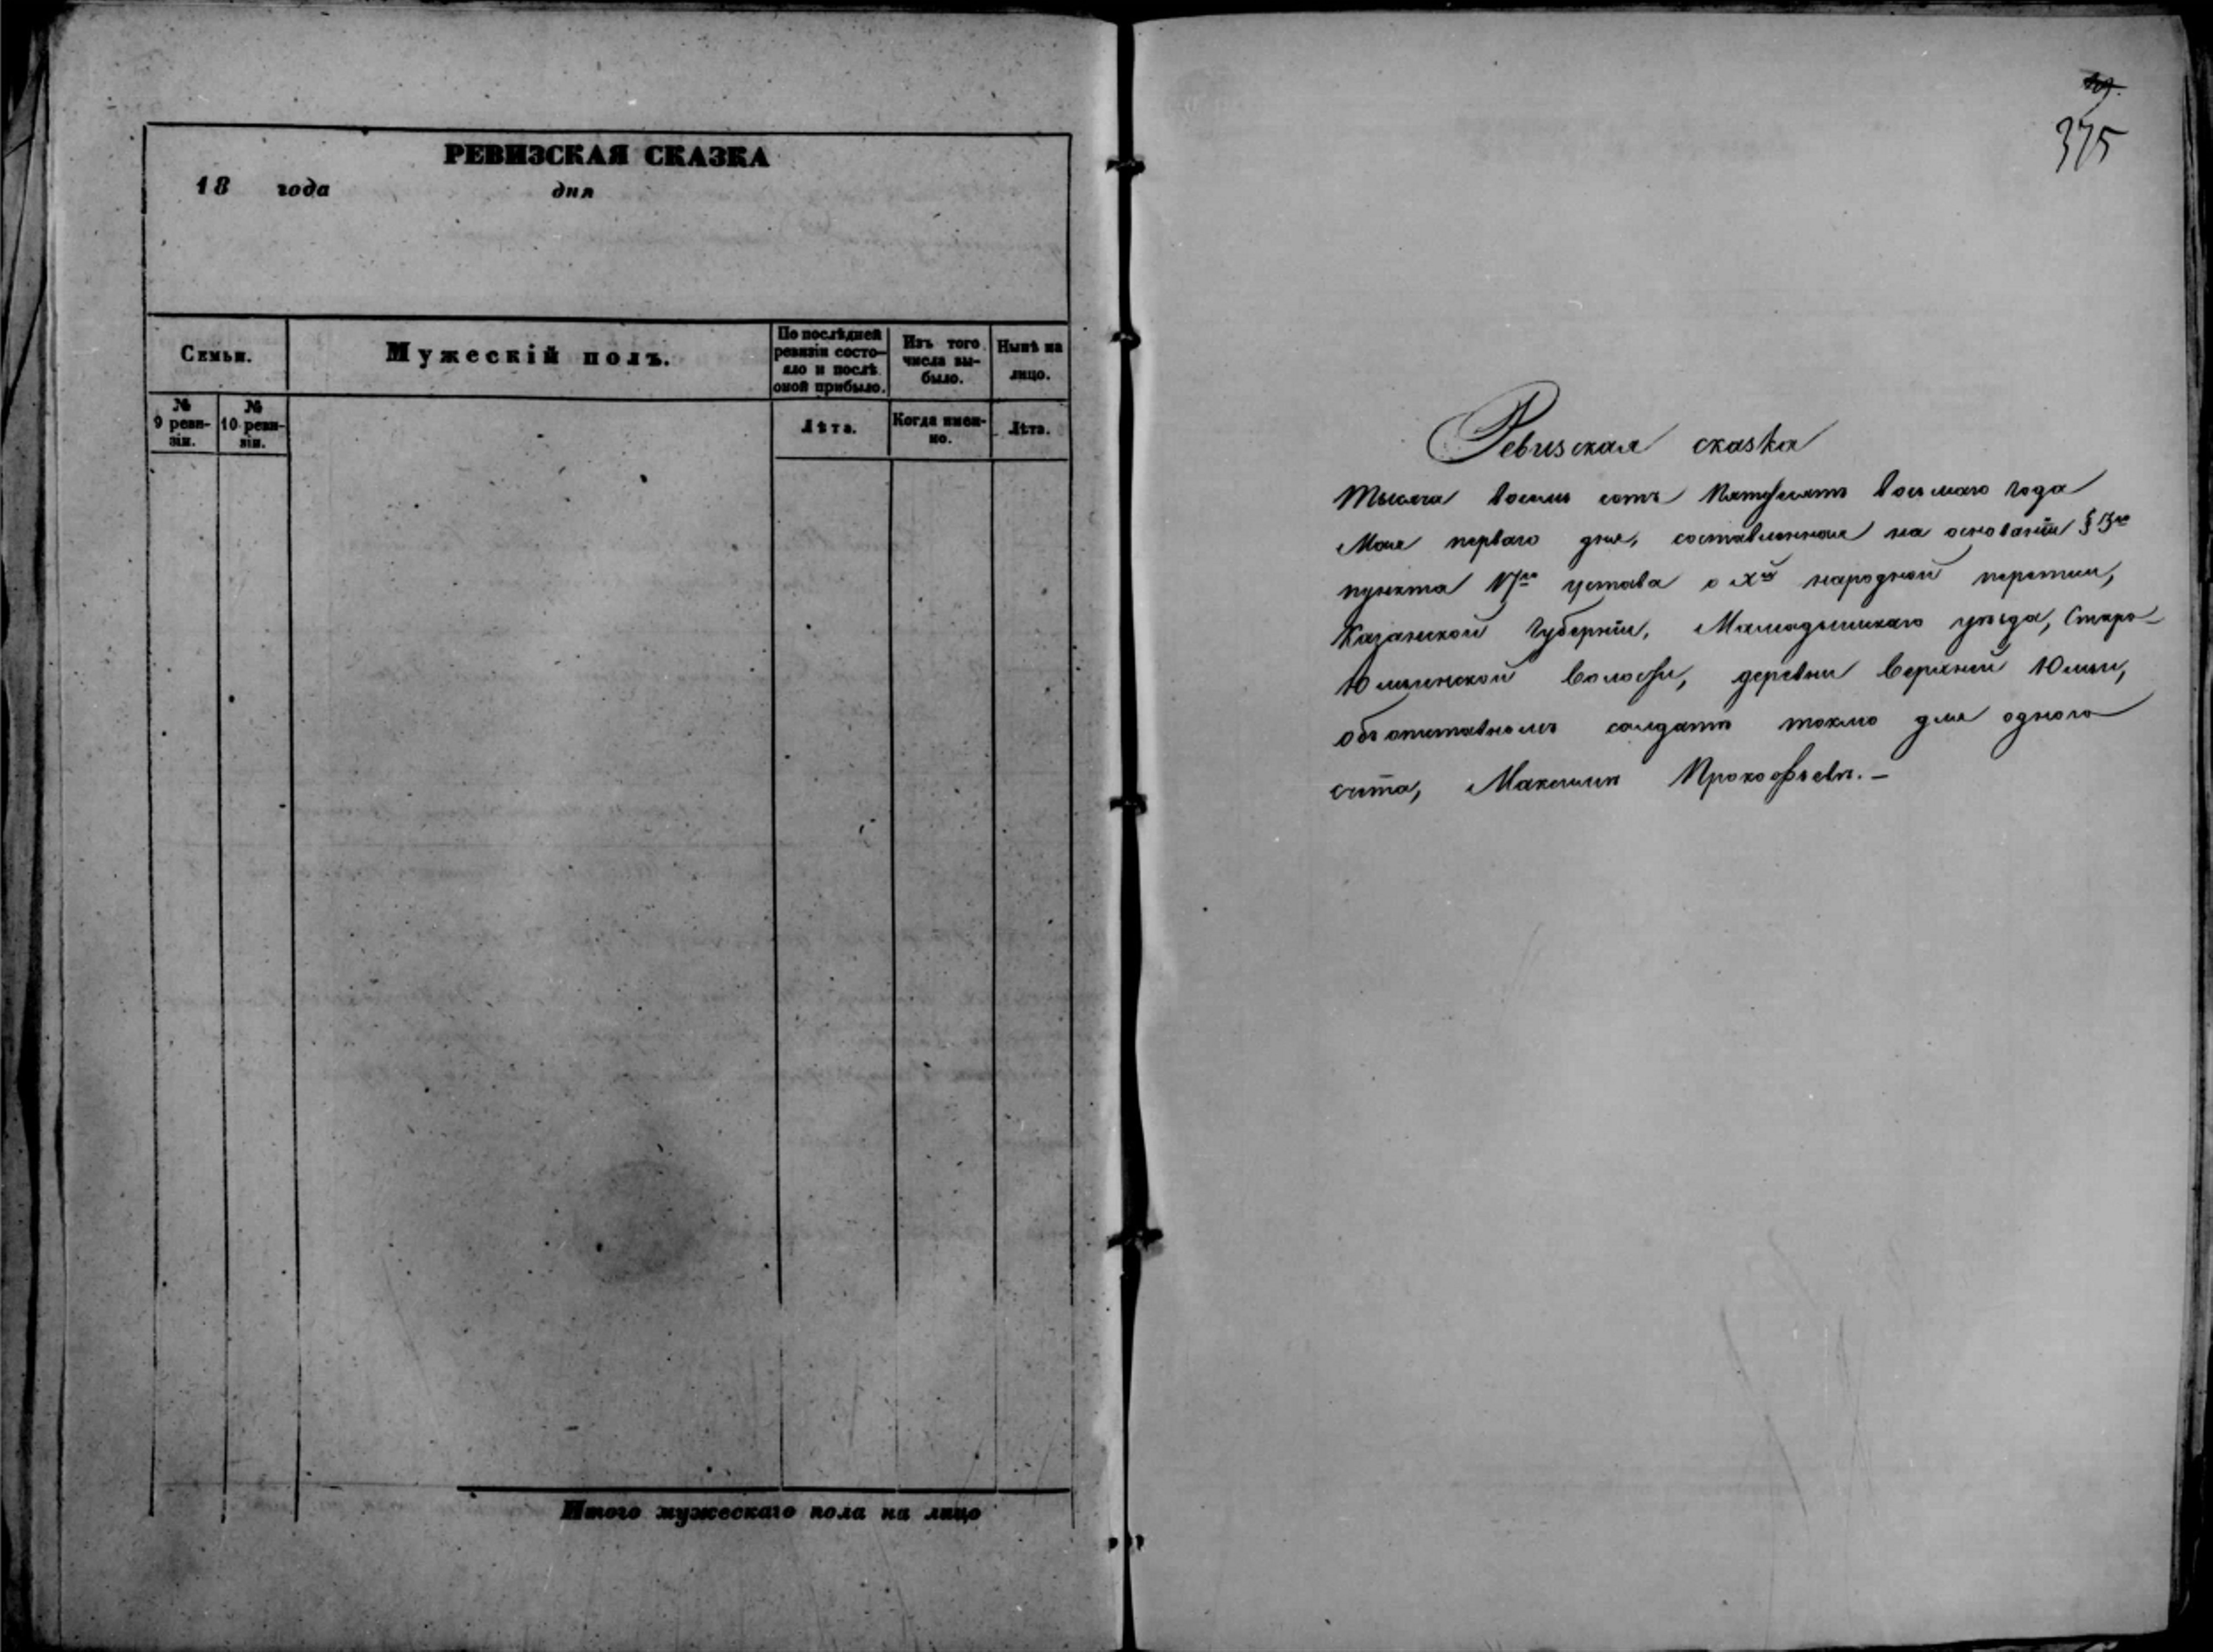 РЕВИЗСКАЯ СКАЗКА
18 года дня
Семьи.
Мужескій полъ.
По послѣдней ревизіи состо-
яло и послѣ оной прибыло.
Изъ того числа вы-
было.
Нынѣ на лицо.
№ 9 реви-
зіи.
№ 10 реви-
зіи.
Лѣта.
Когда имен-
но.
Лѣта.
Итого мужескаго пола на лицо
375
Ревизская сказка
Тысяча восемь сотъ Пятдесятъ восьмаго года
Мая перваго дня, составленная на основаніи § 13го
пункта 17го устава о Xй народной переписи,
Казанской Губерніи, Мамадышскаго уѣзда, Старо-
Юмьинской волости, деревни Верхней Юмьи,
объ отставномъ солдатѣ токмо для одного
счета, Максимъ Прокофьевъ. –